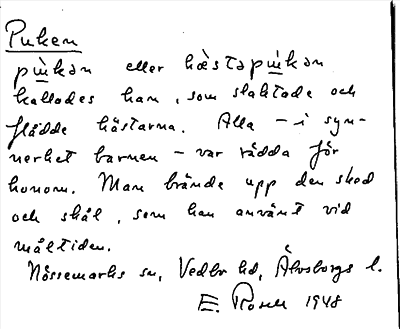 Puken
pẁkən eller hæ̀stapẁkən
kallades han, som slaktade och
flådde hästarna. Alla – i syn-
nerhet barnen – var rädda för
honom. Man brände upp den sked
och skål, som han använt vid
måltiden.
Nössemarks sn, Vedbo hd, Älvsborgs l.
E. Rosell 1948